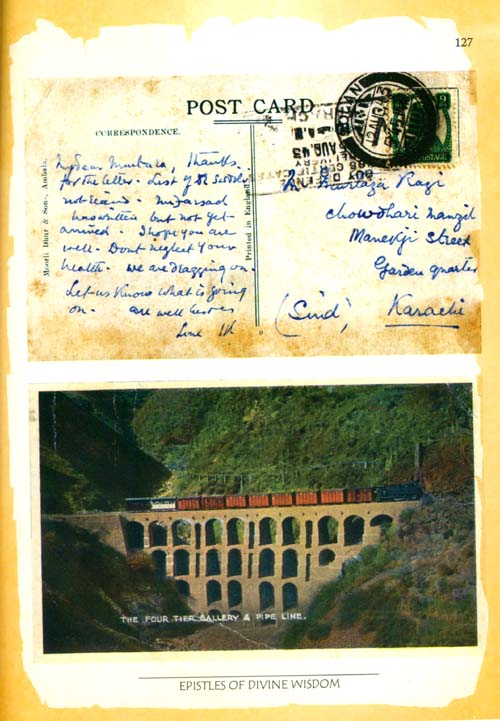 127
POST CARD
CORRESPONDENCE.
My dear Murtaza, Thanks
for the letter. List of
not
has written but not yet
arrived. I hope you are
well. Dont neglect your
health. We are dragging on.
Let us know what is going
on. are well
Moorli Dhur & Sons, Ambala.
Printed in England
AUG 43
POSTAGE
Murtaza Razi
Chowdhari Manzil
Manekji Street
Garden quarter
(Sind) Karachi
THE FOUR TIER GALLERY & PIPE LINE.
EPISTLES OF DIVINE WISDOM